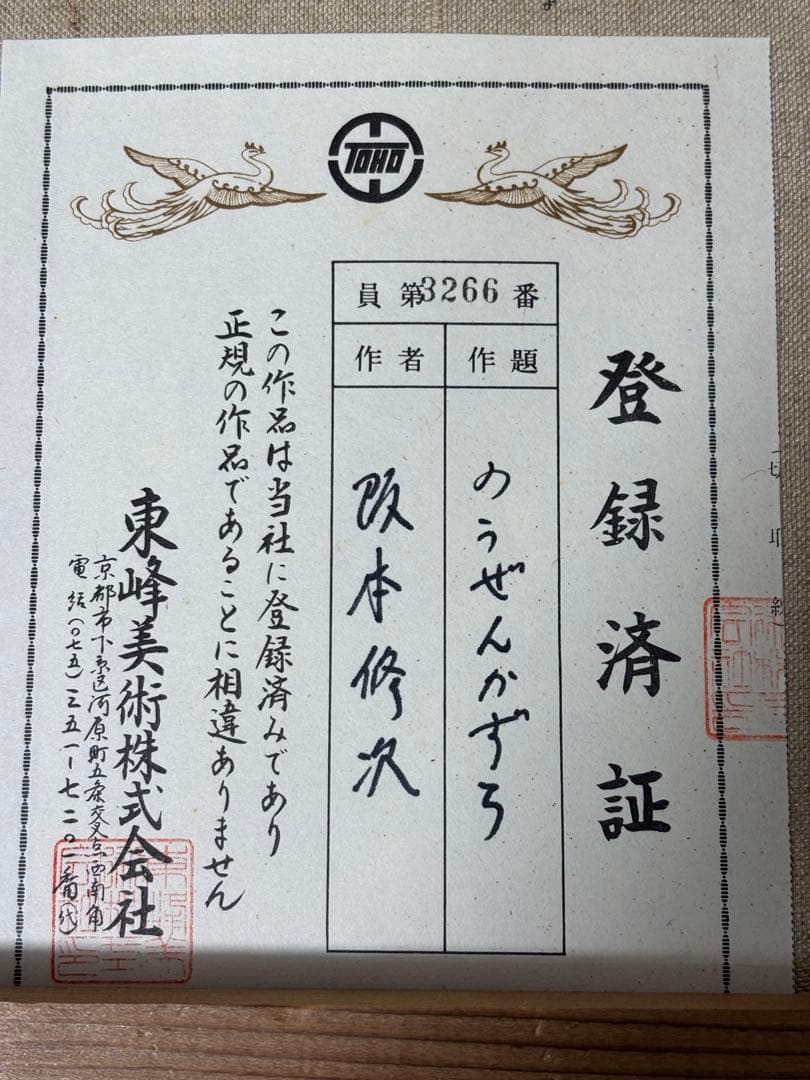 TOHO
登録済証
員第3266番
作題
のうぜんかずら
作者
阪本修次
この作品は当社に登録済みであり
正規の作品であることに相違ありません
東峰美術株式会社
京都市下京区河原町五条交叉点西南角
電話(〇七五)三五一ー七二〇一番(代)
切取線